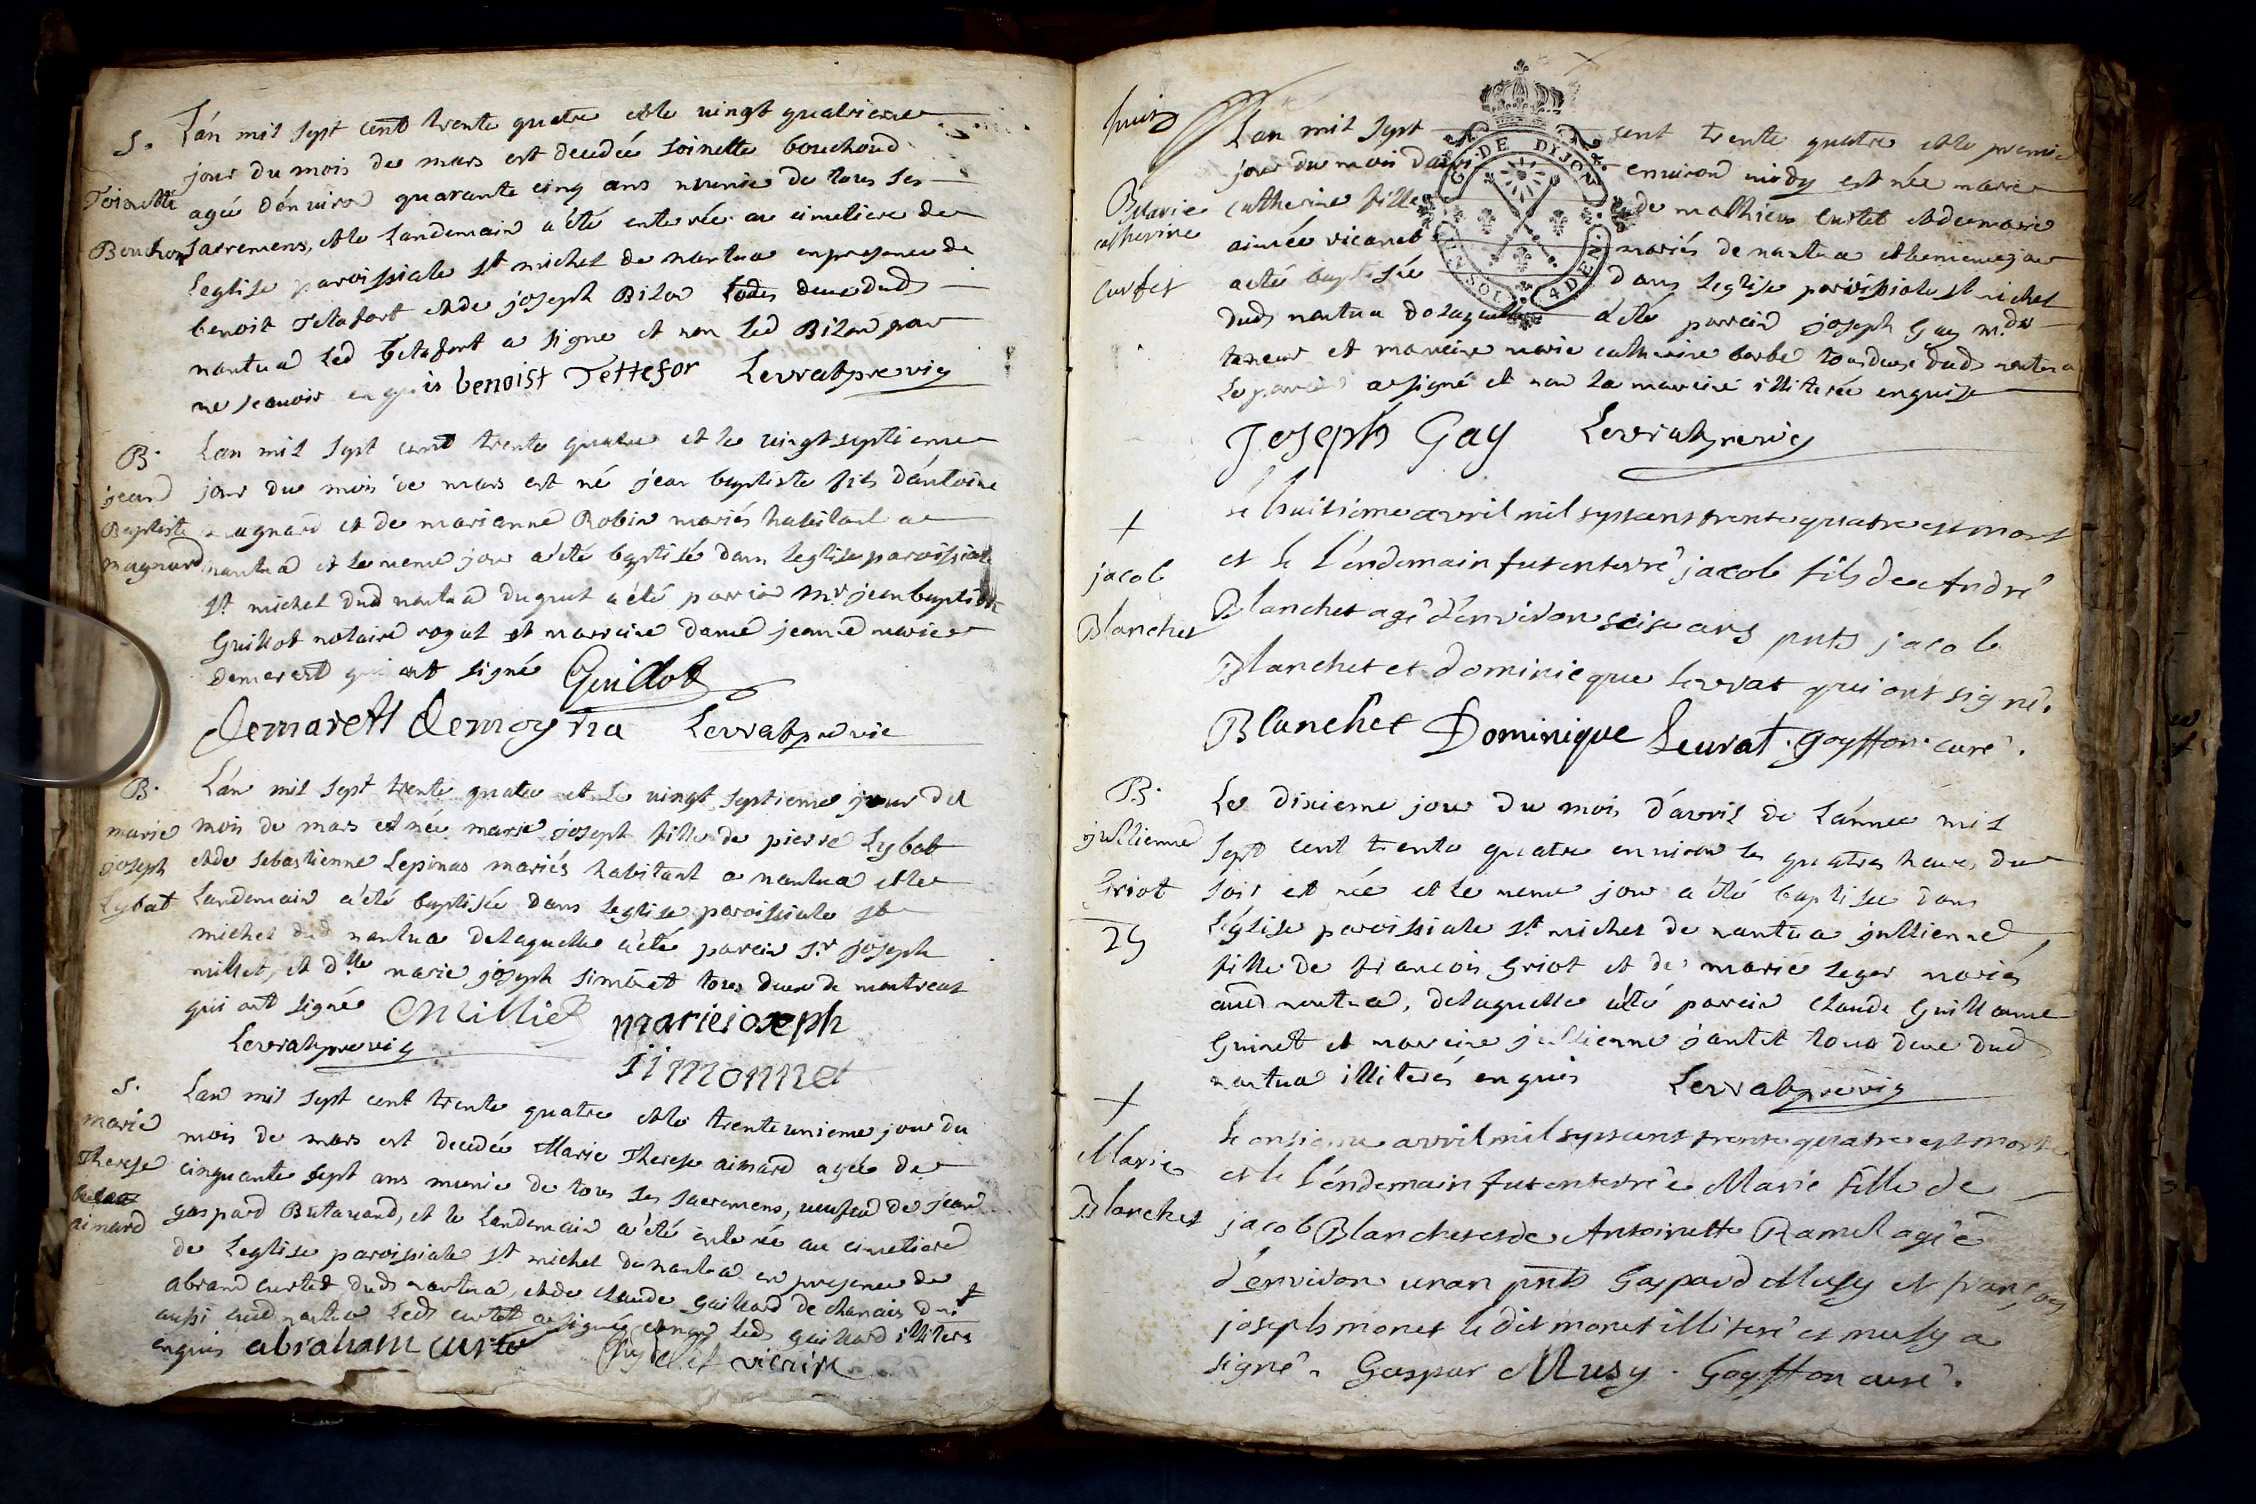 S.
Toinette
Bouchon
L'an mil sept cent trente quatre et le vingt quatrieme
jour du mois de mars est decedée toinette bouchond
agée d'environ quarante cinq ans munie de tous ses
sacremens, et le landemain a été enterrée au cimetiere de
leglise paroissiale st michel de nantua en presence de
benoit Tetafort et de joseph Bilon tous deux dud
nantua led Tetafort a signe et non led Bilon pour
ne scavoir enquis benoist Tettefor Levrat pre vig
B.
jean
Baptiste
magnard
Lan mil sept cent trente quatre et le vingt septieme
jour du mois de mars est né jean baptiste fils d'antoine
magnard et de marianne Robin mariés habitant a
nantua et le meme jour a été baptisé dans leglise paroissiale
st michel dud nantua duquel a été parrin mr jean baptiste
Guillot notaire royal et marreine dame jeanne marie
demarest qui ont signé Guillot
demarest demoyria Levrat pre vic
B.
marie
joseph
Lybat
L'an mil sept trente quatre et le vingt septieme jour du
mois de mars est née marie joseph fille de pierre Lybat
et de sebastienne Lepinas mariés habitant a nantua et le
landemain a été baptisée dans leglise paroissiale st
michel dud nantua delaquelle a été parein sr joseph
millet, et dlle marie joseph simonet tous deux de montreal
qui ont signé Milliet marie ioseph
Levrat pre vig
simonnet
S.
marie
Therese
aimard
Lan mil sept cent trente quatre et le trente unieme jour du
mois de mars est decedée Marie Therese aimard agée de
cinquante sept ans munie de tous ses sacremens, veufve de jean
gaspard Butavand, et le landemain a été enterrée au cimetiere
de leglise paroissiale st michel de nantua en presence de
abrand curtet dud nantua, et de claude gaillard de chanais
aussi dud nantua led curtet a signé et non led gaillard illiteré
enquis abraham curte vicaire
B
Marie
catherine
curtet
Lan mil sept cent trente quatre et le premie
jour du mois davril environ midy est née marie
catherine fille de mathieu curtet et de marie
aimée vicanet mariés de nantua et le meme jour
a été baptisée dans leglise paroissiale st michel
dud nantua delaquelle a été parrein joseph Gay md
taneur et mareine marie catherine barbe tous deux dud nantua
le parrein a signé et non la mareine illiterée enquise
G. DE DIJON
SOL 4 DEN.
Joseph Gay Levrat pre vig
+
jacob
Blanchet
le huitieme avril mil sept cens trente quatre est mort
et le l'endemain fut enterré jacob fils de André
Blanchet agé d'environ seise ans pnts jacob
Blanchet et dominicque levrat qui ont signé.
Blanchet Dominique Leurat. Goyffon curé.
B.
jullienne
Griot
Le dixieme jour du mois d'avril de L'année mil
sept cent trente quatre environ les quatres heures du
soir est née et le meme jour a été baptisée dans
L'église paroissiale st michel de nantua jullienne
fille de francois Griot et de marie leger mariés
aud nantua, delaquelle a été parein claude Guillaume
Guinet et mareine jullienne jantet tous deux dud
nantua illiterés enquis Levrat pre vig
+
Marie
Blanchet
le onsieme avril mil sept cens trente quatre est morte
et le l'éndemain fut enterrée Marie fille de
jacob Blanchet et de Antoinette Ramel agée
d'environ un an pnts Gaspard Musy et françois
joseph monet le dit monet illiteré et musy a
signé. Gaspar Musy. Goyffon curé.